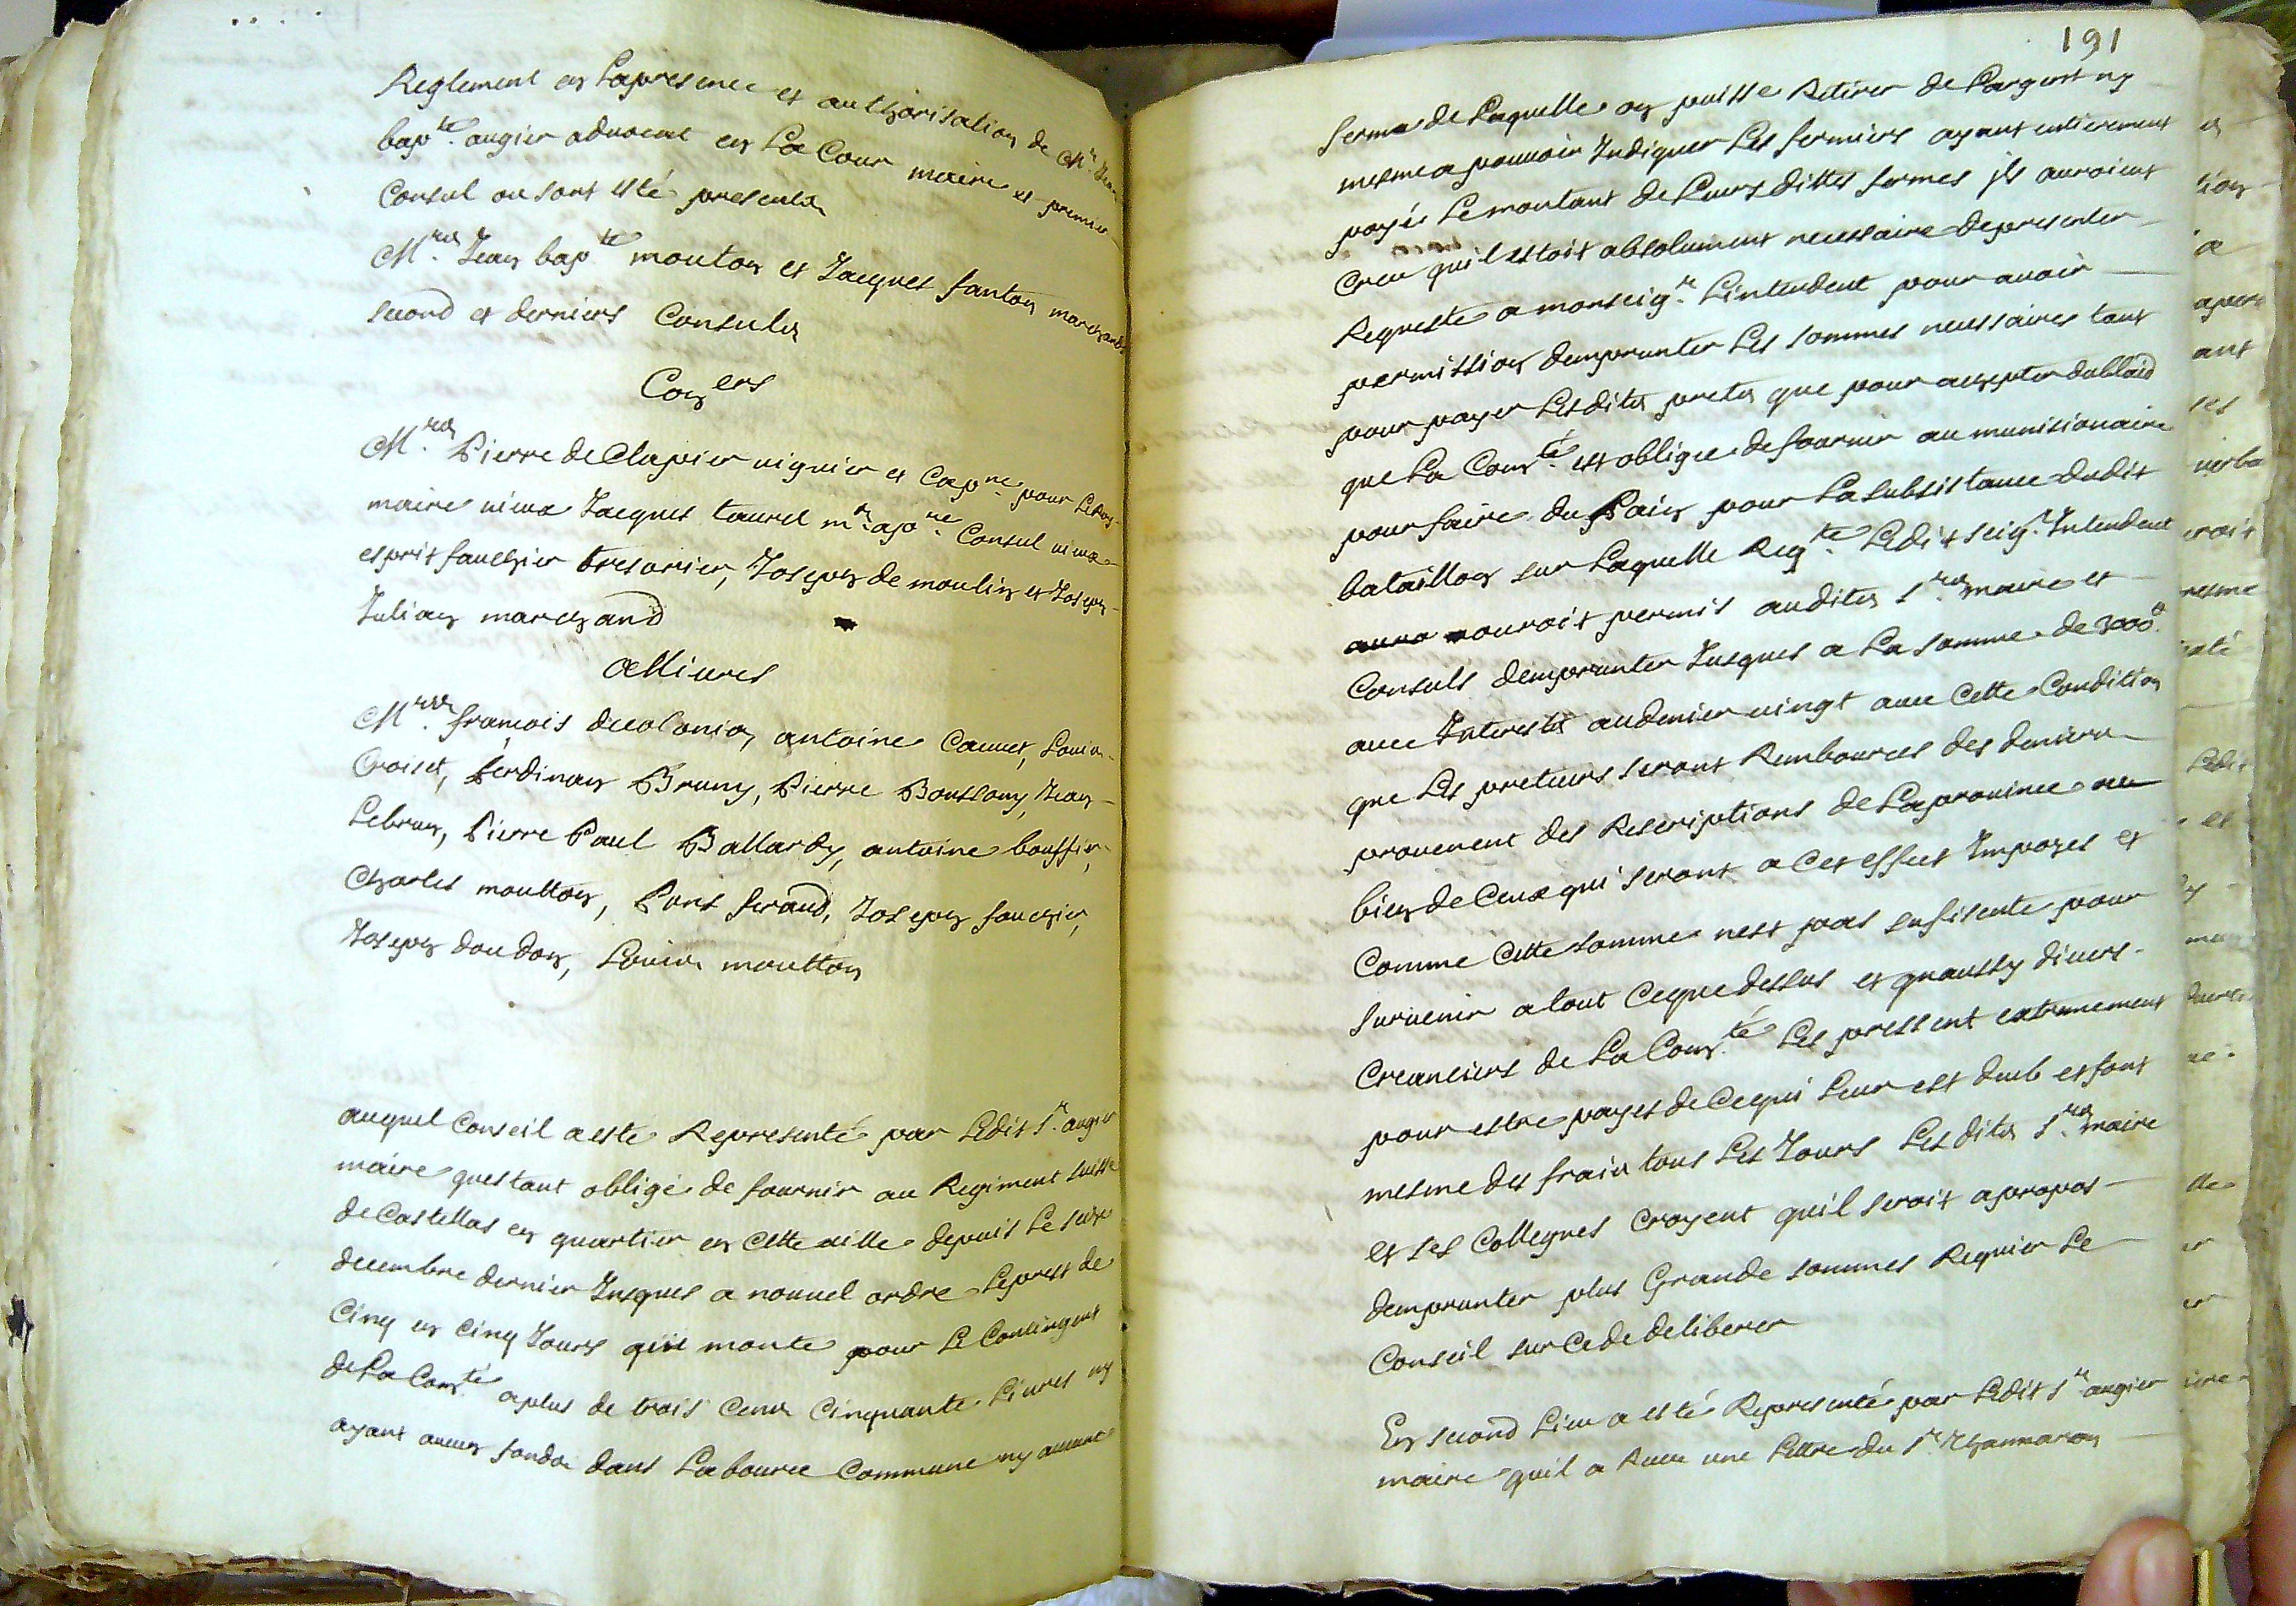 Reglement en la presence et authorisation de Mr Jean
bapte. augier advocat en La Cour maire et premier
Consul ou sont esté presents
Mrs. Jean bapte mouton et Jacques fanton marchands
second et derniers Consuls
Coners
Mrs. Pierre de Clapier viguier et Capne. pour Le Roy
maire vieux Jacques taurel mr. apore Consul vieux
esprit fauchier tresorier, Joseph de moulin et Joseph
Julian marchand
allivres
Mrs. françois decolonia, antoine Cauvet, Louis
Croiset, ferdinan Bruny, Pierre Boussony, Jean
Lebrun, Pierre Paul Ballardy, antoine bouffier,
Charles moutton, Pons feraud, Joseph fauchier,
Joseph doudon, Louis moutton
auquel Conseil a esté Representé par Ledit Sr. augier
maire questant obligé de fournir au Regiment suisse
de Castellas en quartier en Cette ville depuis Le
decembre dernier Jusques a nouvel ordre Leprest de
Cinq en Cinq Jours qui monte pour Le Contingent
de La Comté a plus de trois Cens Cinquante Livres ny
ayant aucun fonds dans La bource Commune ny aucune
191
ferme de Laquelle on puisse Retirer de Largent ny
mesme a pouvoir Indiquer Les fermiers ayant entierement
payés Le montant de Leurs dittes fermes jls auroient
Creu quil estoit absolument necessaire depresenter
Requeste a monseigr. Lintendent pour avoir
permission demprunter Les sommes necessaires tant
pour payer Lesdits prets que pour achepter dubled
que La Comté. est obligée de fournir au munisionaire
pour faire du Pain pour La subsistance dudit
bataillon sur Laquelle Reqte. Ledit seigr. Intendent
auroit permis audits Srs. maire et
Consuls demprunter Jusques a La somme de 3000 tt
avec Interests au denier vingt avec Cette Condition
que Les preteurs seront Rembourcés des deniers
provenent des Rescriptions de La province ou
bien de Ceux qui seront a Cet effect Imposes et
Comme Cette somme nest pas sufisente pour
survenir a tout Ceque dessus et quaussy divers
Creanciers de La Comté Les pressent extremement
pour estre payes de Cequi Leur est deub et font
mesme des frais tous Les Jours Les dits Srs. maire
et ses Collegues Croyent quil seroit a propos
demprunter plus Grande sommes Requier Le
Conseil sur Ce de deliberer
En second Lieu a esté Representé par Ledit Sr. augier
maire quil a Receu une Lettre du Sr.